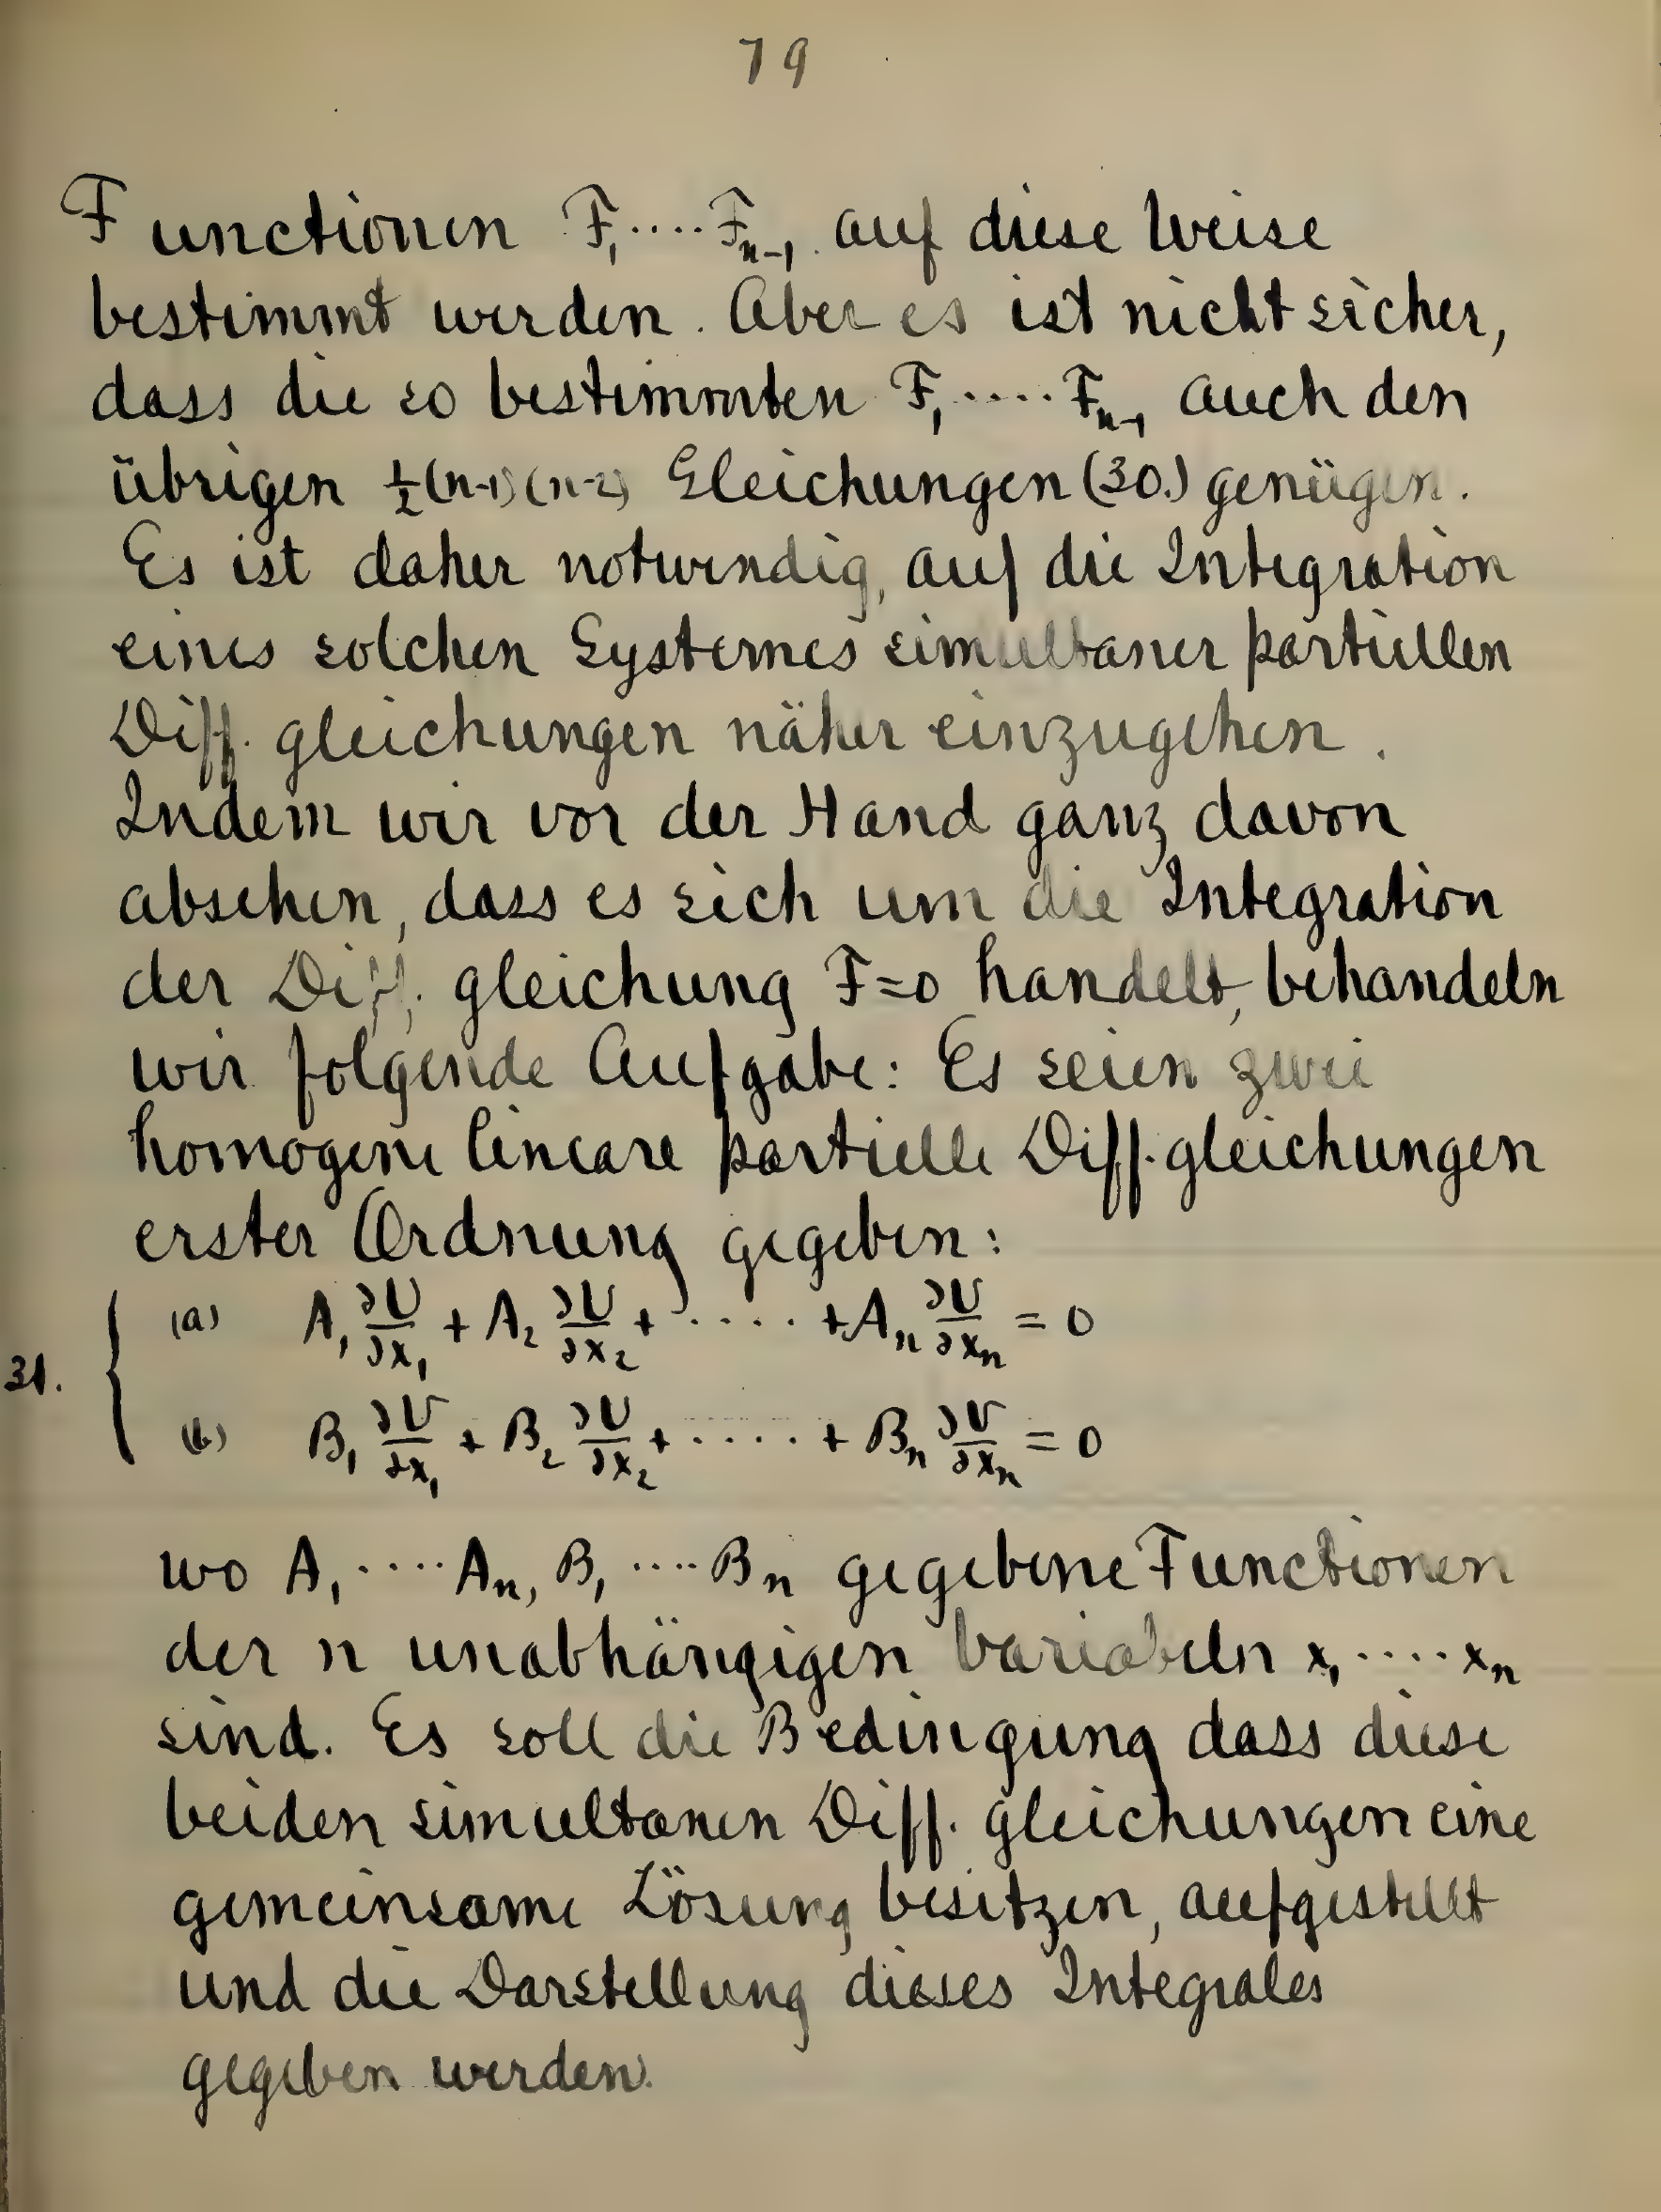 79
Functionen F₁ ····· Fₙ₋₁ auf diese Weise
bestimmt werden. Aber es ist nicht sicher,
dass die so bestimmten F₁ ····· Fₙ₋₁ auch den
übrigen ½(n-1)(n-2) Gleichungen (30.) genügen.
Es ist daher notwendig, auf die Integration
eines solchen Systemes simultaner partiellen
Diff. gleichungen näher einzugehen.
Indem wir vor der Hand ganz davon
absehen, dass es sich um die Integration
der Diff. gleichung F=0 handelt, behandeln
wir folgende Aufgabe: Es seien zwei
homogene lineare partielle Diff. gleichungen
erster Ordnung gegeben:
(a) A₁ ∂U/∂x₁ + A₂ ∂U/∂x₂ + ····· + Aₙ ∂U/∂xₙ = 0
31.
(b) B₁ ∂U/∂x₁ + B₂ ∂U/∂x₂ + ····· + Bₙ ∂U/∂xₙ = 0
wo A₁ ····· Aₙ, B₁ ····· Bₙ gegebene Functionen
der n unabhängigen Variabeln x₁ ····· xₙ
sind. Es soll die Bedingung dass diese
beiden simultanen Diff. gleichungen eine
gemeinsame Lösung besitzen, aufgestellt
und die Darstellung dieses Integrales
gegeben werden.